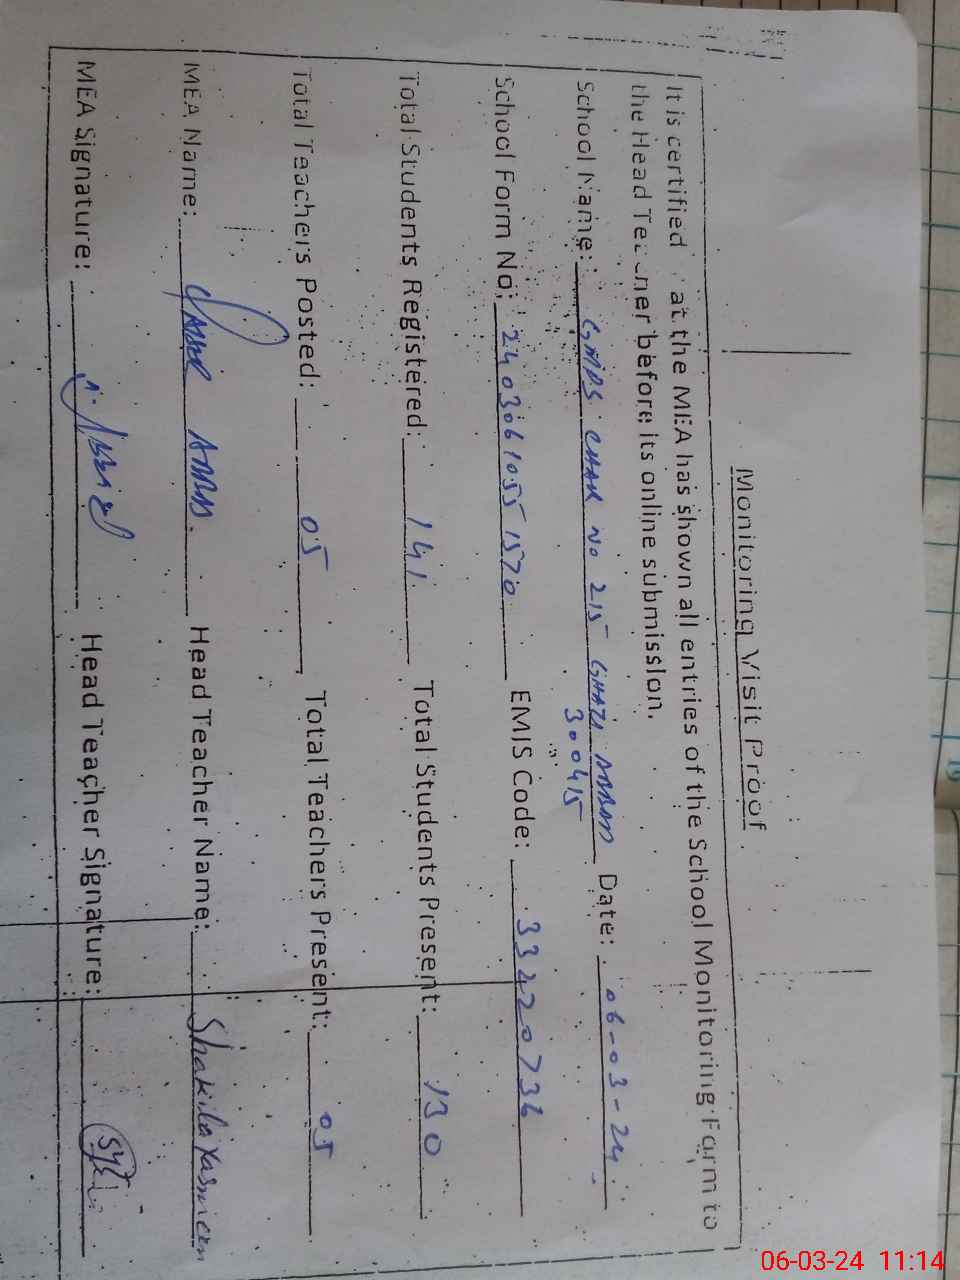 Monitoring Visit Proof
It is certified at the MEA has shown all entries of the School Monitoring Form to
the Head Teacher before its online submission.
School Name: GMPS CHAK NO 215 GHAZI ABBAD Date: 06-03-24
300415
School Form No: 2403061055 1570 EMIS Code: 33420736
Total Students Registered: 141 Total Students Present: 130
Total Teachers Posted: 05 Total Teachers Present: 05
MEA Name: Head Teacher Name: Shakila Yasmeen
MEA Signature: Head Teacher Signature:
06-03-24 11:14